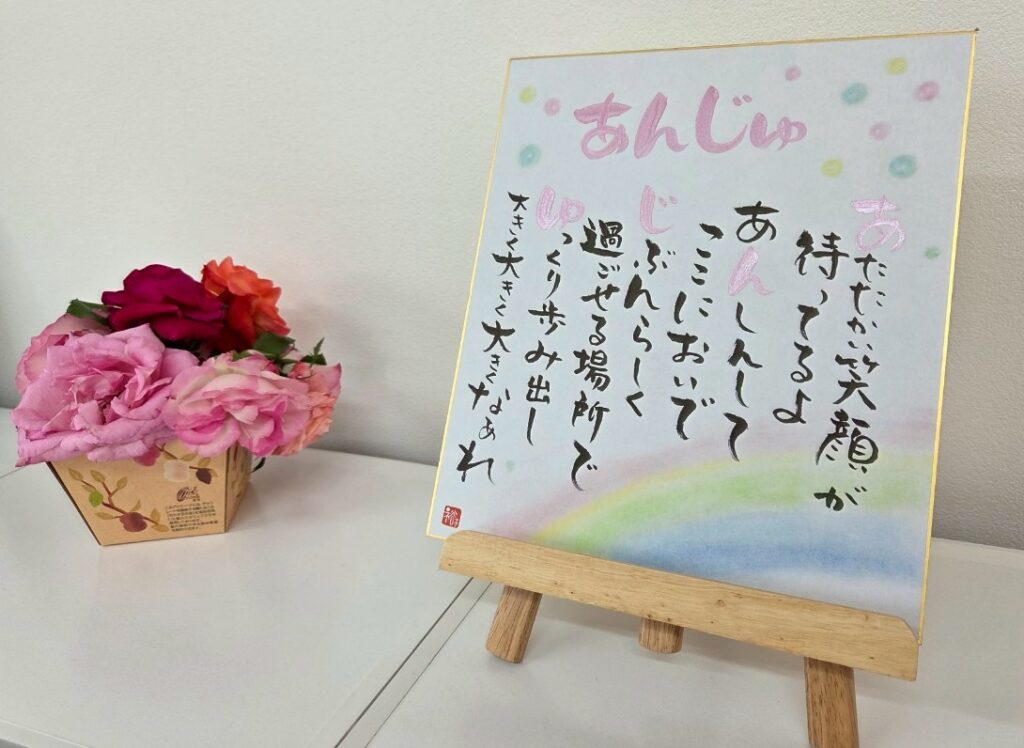 あんじゅ
あたたかい笑顔が
待ってるよ
あんしんして
ここにおいで
じぶんらしく
過ごせる場所で
ゆっくり歩み出し
大きく大きく大きくなぁれ